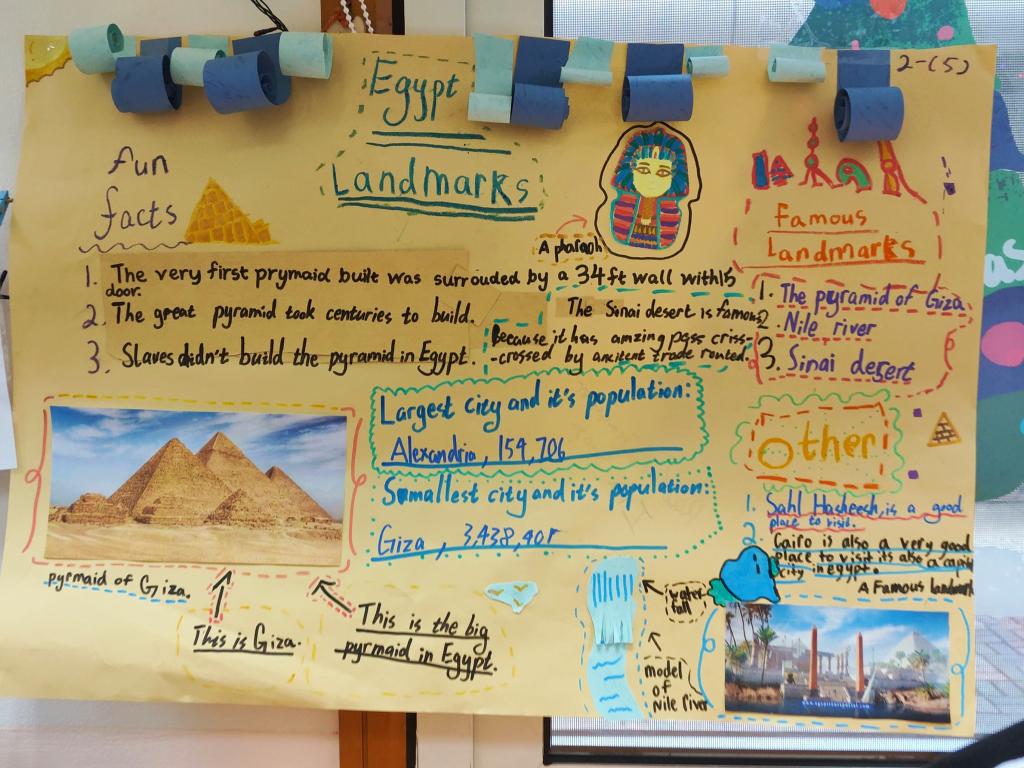 2-(5)
Egypt
Landmarks
fun
facts
1. The very first prymaid built was surrouded by a 34ft wall with 15
door.
2. The great pyramid took centuries to build.
3. Slaves didn't build the pyramid in Egypt.
A pharaoh
The Sinai desert is famous
Because it has amzing pass criss-
-crossed by ancient trade routed.
Famous
Landmarks
1. The pyramid of Giza
2. Nile river
3. Sinai desert
Largest city and it's population:
Alexandria, 159,706
Smallest city and it's population:
Giza, 3,438,401
Other
1. Sahl Hasheesh, is a good
place to visit.
2 Cairo is also a very good
place to visit its also a capital
city in egypt.
A Famous landmark
pyrmaid of Giza.
This is Giza.
This is the big
pyrmaid in Egypt.
water
fall
model
of
Nile river